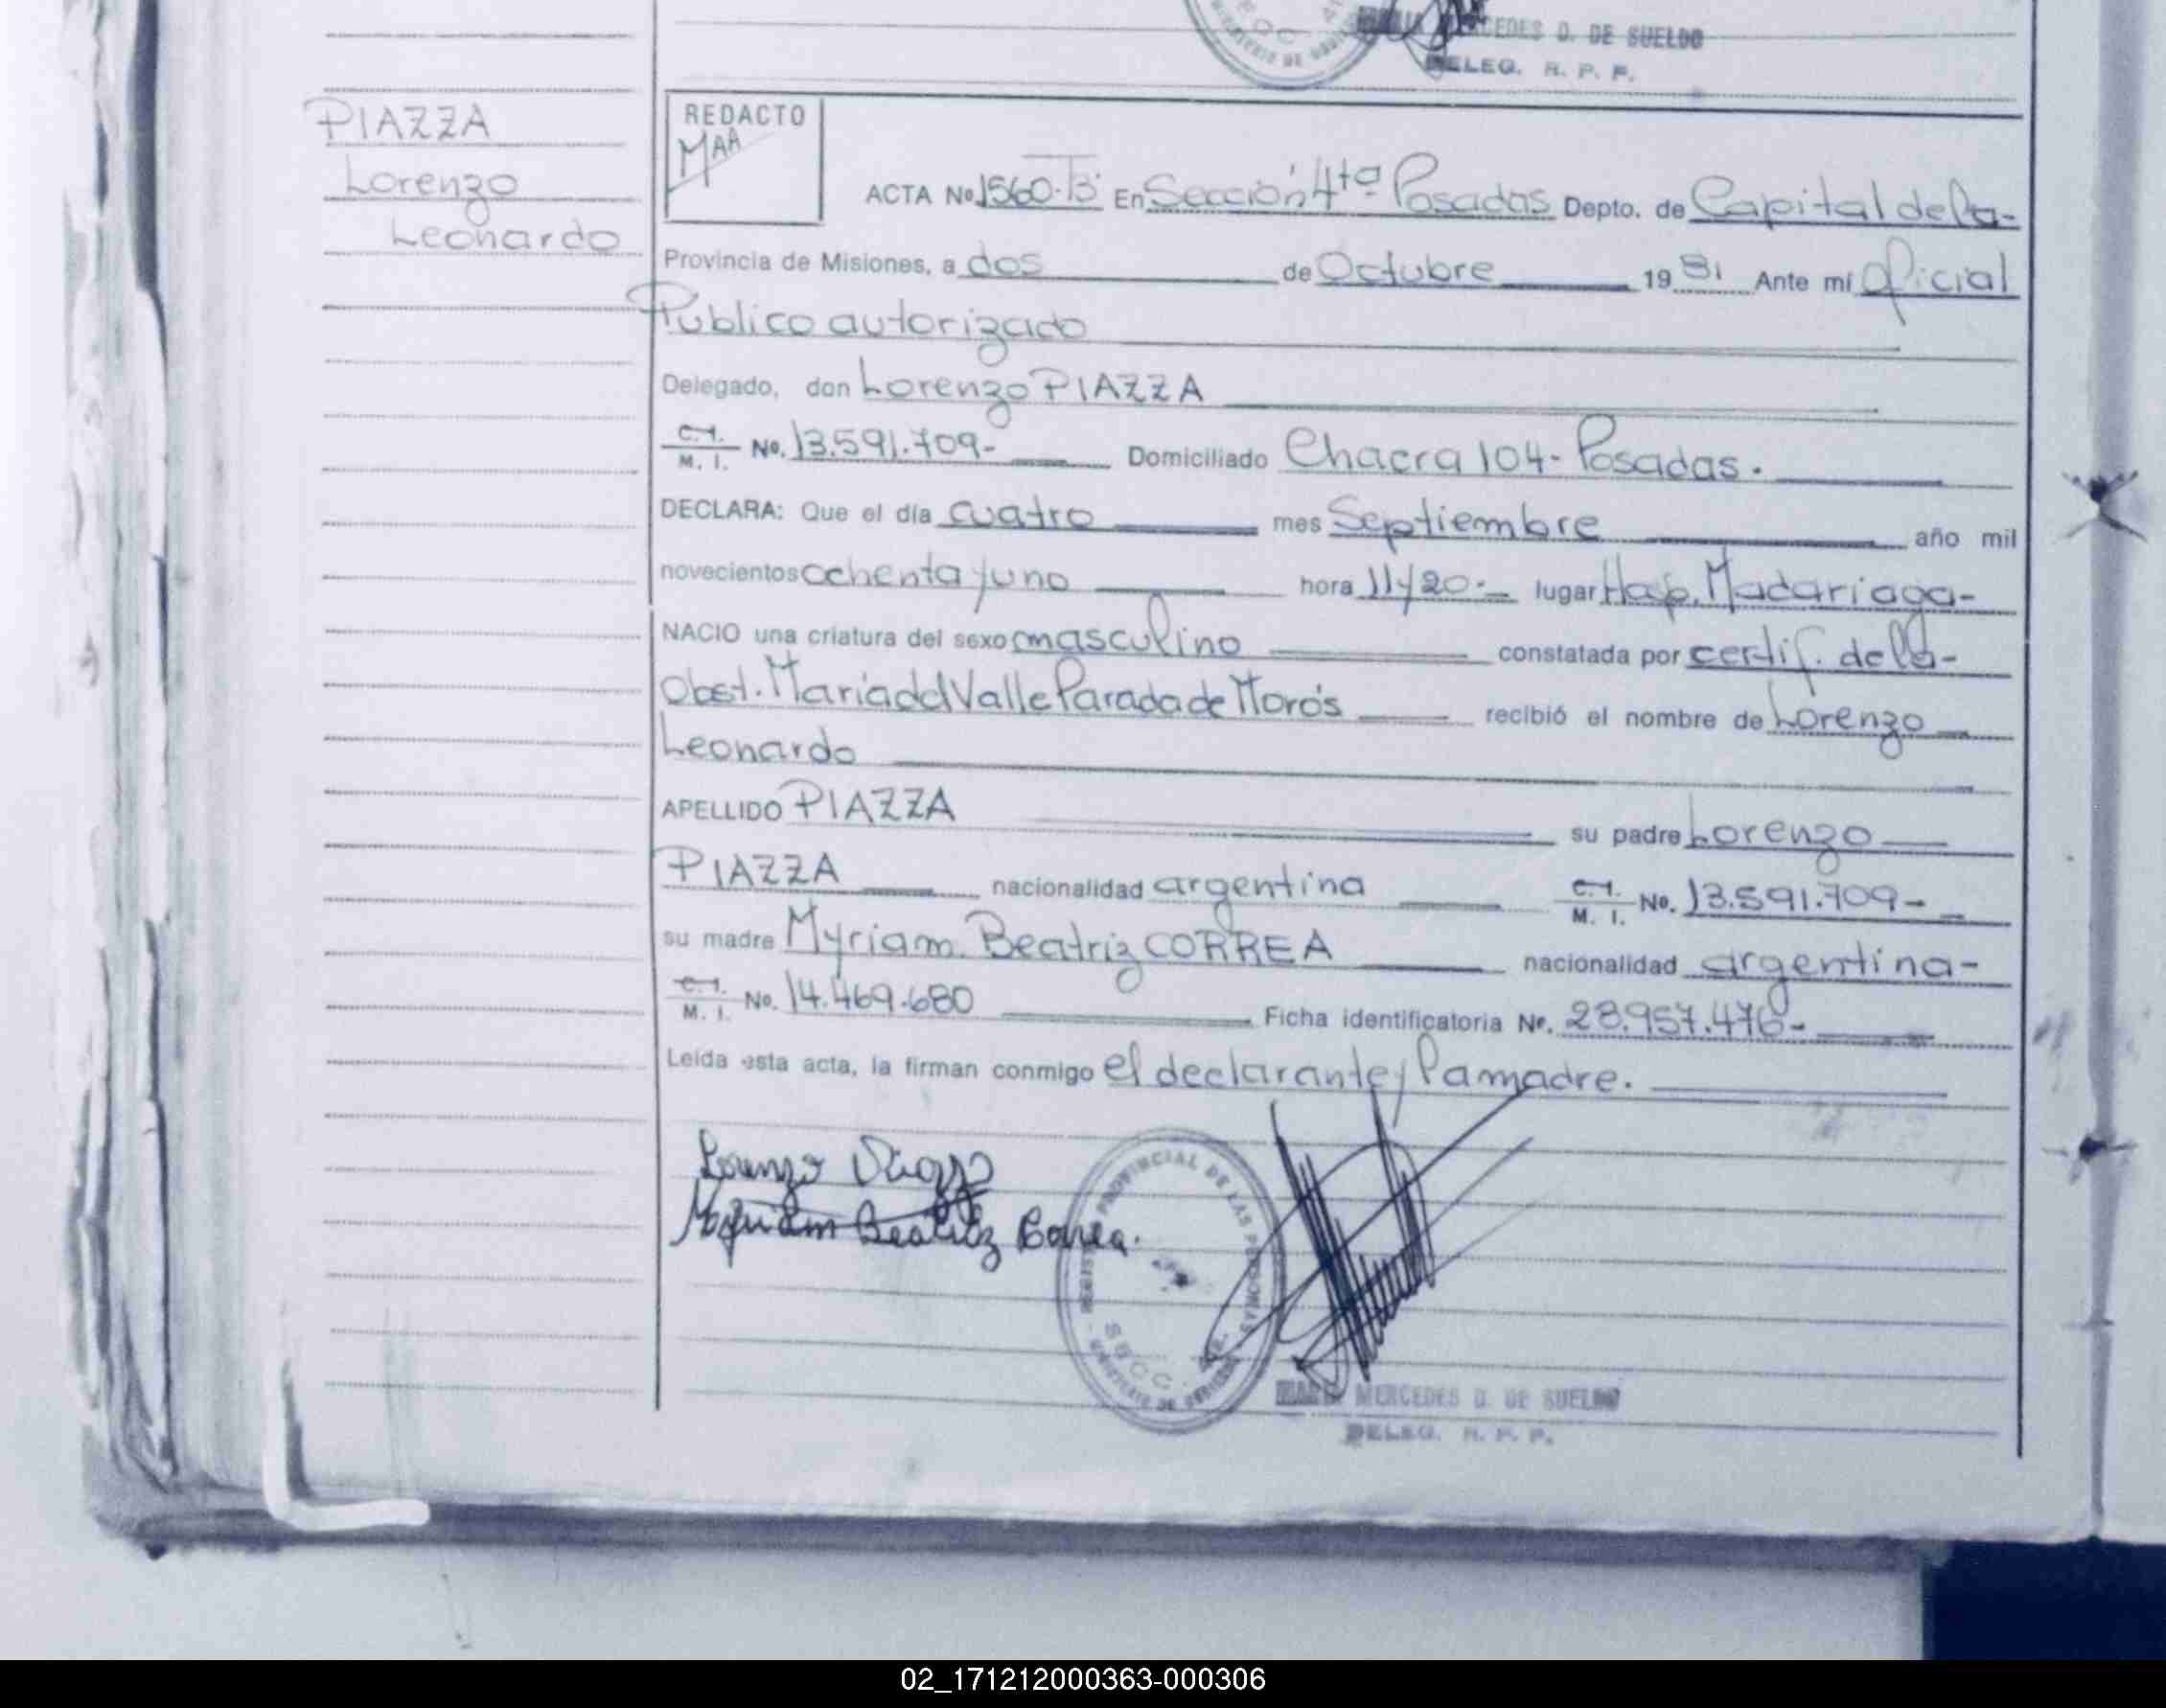 MERCEDES D. DE SUELDO
DELEG. R. P. P.
PIAZZA
Lorenzo
Leonardo
REDACTO
MAA
ACTA No 1560-T3 En Sección 4ta Posadas Depto. de Capital de la-
Provincia de Misiones, a dos de Octubre 1981 Ante mí Oficial
Publico autorizado
Delegado, don Lorenzo PIAZZA
C.I. M. I. No. 13.591.709- Domiciliado Chacra 104- Posadas.
DECLARA: Que el día cuatro mes Septiembre año mil
novecientos ochenta y uno hora 11y20.- lugar Hosp. Madariaga-
NACIO una criatura del sexo masculino constatada por certif. de la-
Obst. María del Valle Parada de Morós recibió el nombre de Lorenzo
Leonardo
APELLIDO PIAZZA su padre Lorenzo
PIAZZA nacionalidad argentina C.I. M. I. No. 13.591.709-
su madre Myriam Beatriz CORREA nacionalidad argentina-
C.I. M. I. No. 14.469.680 Ficha identificatoria No. 28.957.476-
Leida esta acta, la firman conmigo el declarante y la madre.
Lorenzo Piazza
Myriam Beatriz Correa.
REGISTRO PROVINCIAL DE LAS PERSONAS
SECC. 4ta.
MINISTERIO DE GOBIERNO
MARIA MERCEDES D. DE SUELDO
DELEG. R. P. P.
02_171212000363-000306